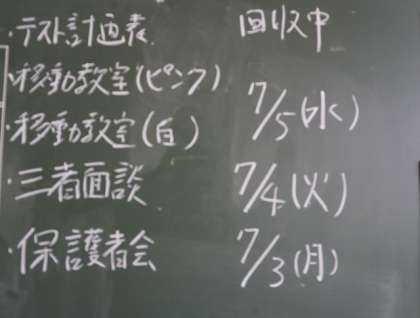 ・テスト計画表 回収中
・移動教室(ピンク)
7/5(水)
・移動教室(白)
・三者面談 7/4(火)
・保護者会 7/3(月)